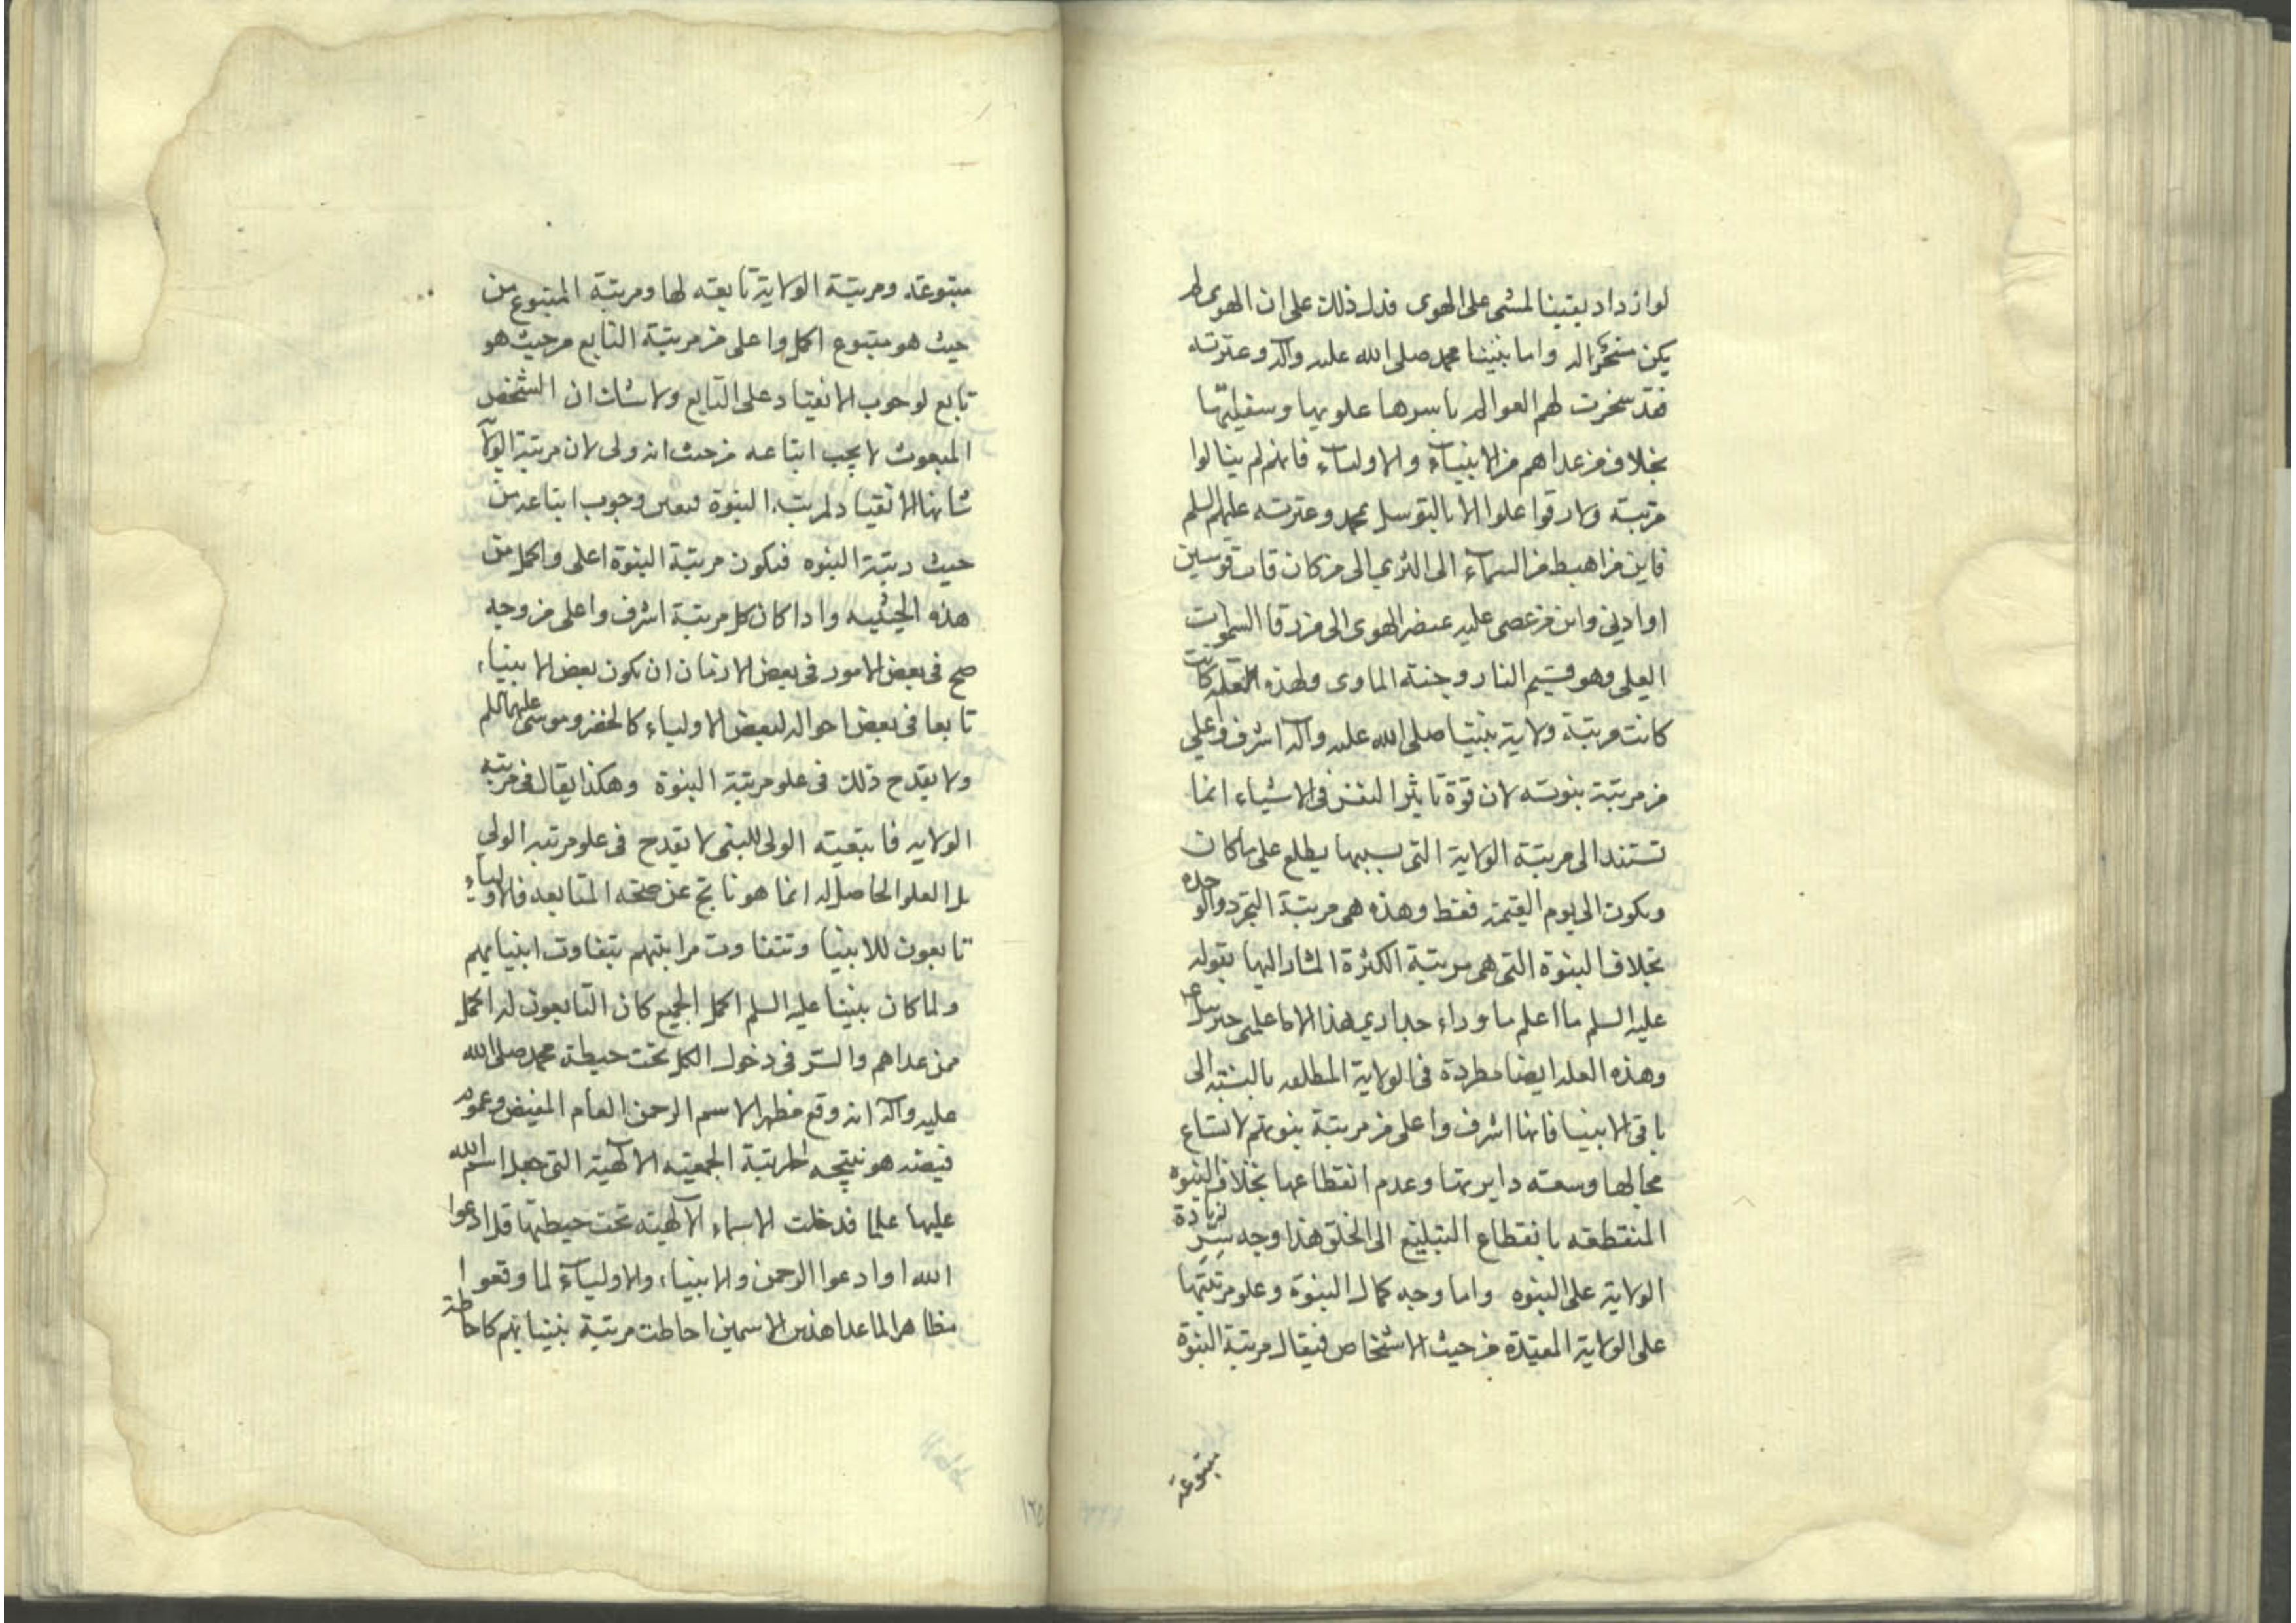 لو ازداد يقينا لمشى على الهوى فدل ذلك على ان الهوى لم
يكن مسخرا له واما نبينا محمد صلى الله عليه وآله وعترته
فقد سخرت لهم العوالم باسرها علويها وسفليتها
بخلاف من عداهم من الانبياء والاولياء فانهم لم ينالوا
مرتبة ولا رقوا علوا الا بالتوسل بمحمد وعترته عليهم السلم
فاين من اهبط من السماء الى الثرى الى من كان قاب قوسين
او ادنى واين من عصى عليه عنصر الهوى الى من رقا السموات
العلى وهو قسيم النار وجنة الماوى ولهذه العلة كانت
كانت مرتبة ولاية نبينا صلى الله عليه وآله اشرف واعلى
من مرتبة نبوته لان قوة تاثير النفس فى الاشياء انما
تستند الى مرتبة الولاية التى بسببها يطلع على ما كان
ويكون الى يوم القيمة فقط وهذه هى مرتبة التجرد والوحده
بخلاف النبوة التى هى مرتبة الكثرة المشار اليها بقوله
عليه السلم ما اعلم ما وراء جدارى هذا الا ما علمنى جبرئيل ع
وهذه العله ايضا مطردة فى الولاية المطلقه بالنسبة الى
باقى الانبيا فانها اشرف واعلى من مرتبة نبوتهم لاتساع
مجالها وسعة دايرتها وعدم انقطاعها بخلاف النبوه
المنقطعه بانقطاع التبليغ الى الخلق هذا وجه سر زيادة
الولاية على النبوه واما وجه كمال النبوة وعلو مرتبتها
على الولاية المقيدة من حيث الاشخاص فيقال مرتبة النبوة
متبوعة
متبوعة ومرتبة الولاية تابعه لها ومرتبة المتبوع من
حيث هو متبوع اكمل واعلى من مرتبة التابع من حيث هو
تابع لوجوب الانقياد على التابع ولا شك ان الشخص
المبعوث لا يجب اتباعه من حيث انه ولى لان مرتبة الولاية
شانها الانقياد لمرتبة النبوة فتعين وجوب اتباعه من
حيث رتبة النبوه فتكون مرتبة النبوة اعلى واكمل من
هذه الحيثيه واذا كان كل مرتبة اشرف واعلى من وجه
صح فى بعض الامور فى بعض الازمان ان يكون بعض الانبياء
تابعا فى بعض احواله لبعض الاولياء كالخضر وموسى عليهما السلم
ولا يقدح ذلك فى علو مرتبة النبوة وهكذا يقال فى مرتبه
الولايه فان تبعية الولى للنبى لا يقدح فى علو مرتبه الولى
بل العلو الحاصل له انما هو ناتج عن صحة المتابعه فالاولياء
تابعون للانبيا وتتفاوت مراتبهم بتفاوت انبيائهم
ولما كان نبينا عليه السلم اكمل الجميع كان التابعون له اكمل
ممن عداهم والسر فى دخول الكل تحت حيطة محمد صلى الله
عليه وآله انه وقع مظهر الاسم الرحمن العام الفيض وعموم
فيضه هو نتيجه المرتبة الجمعيه الالهية التى جعل اسم الله
عليها علما فدخلت الاسماء الالهيه تحت حيطتها قل ادعوا
الله او ادعوا الرحمن والانبياء والاولياء لما وقعوا
مظاهر الما عدا هذين الاسمين احاطت مرتبة نبينا بهم كاحاطة
١٢٥